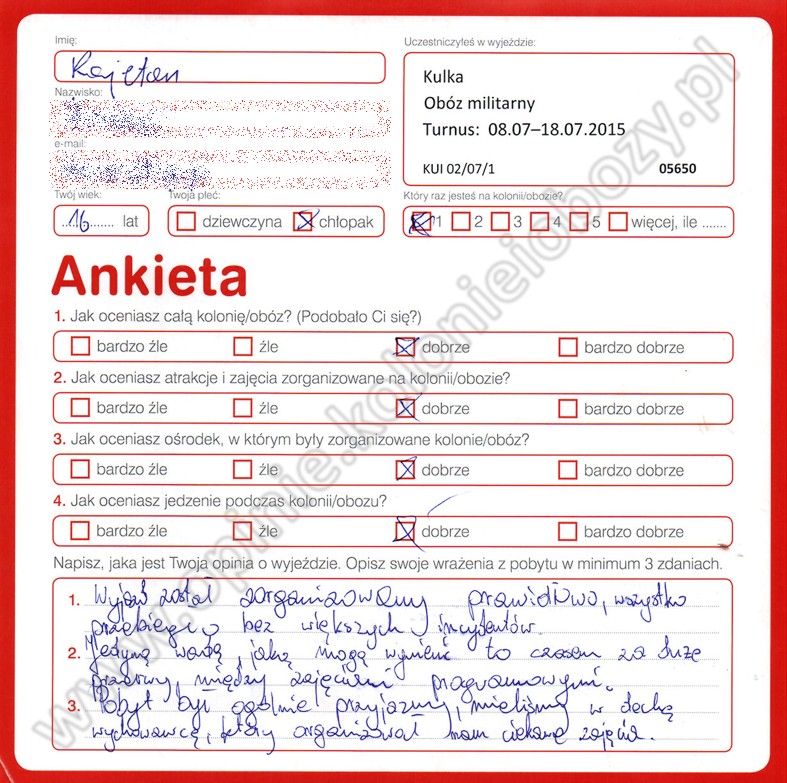 Imię:
Kajetan
Nazwisko:
e-mail:
Uczestniczyłeś w wyjeździe:
Kulka
Obóz militarny
Turnus: 08.07–18.07.2015
KUI 02/07/1 05650
Twój wiek:
16 lat
Twoja płeć:
dziewczyna chłopak
Który raz jesteś na kolonii/obozie?
1 2 3 4 5 więcej, ile .......
Ankieta
1. Jak oceniasz całą kolonię/obóz? (Podobało Ci się?)
bardzo źle źle dobrze bardzo dobrze
2. Jak oceniasz atrakcje i zajęcia zorganizowane na kolonii/obozie?
bardzo źle źle dobrze bardzo dobrze
3. Jak oceniasz ośrodek, w którym były zorganizowane kolonie/obóz?
bardzo źle źle dobrze bardzo dobrze
4. Jak oceniasz jedzenie podczas kolonii/obozu?
bardzo źle źle dobrze bardzo dobrze
Napisz, jaka jest Twoja opinia o wyjeździe. Opisz swoje wrażenia z pobytu w minimum 3 zdaniach.
1. Wyjazd został zorganizowany prawidłowo, wszystko
przebiegło bez większych incydentów.
2. Jedyną wadą, jaką mogą wymienić to czasem za duże
przerwy między zajęciami programowymi.
3. Pobyt był ogólnie przyjazny, mieliśmy w dechę
wychowawcę, który organizował nam ciekawe zajęcia.
www.opinie.kolonieiobozy.pl